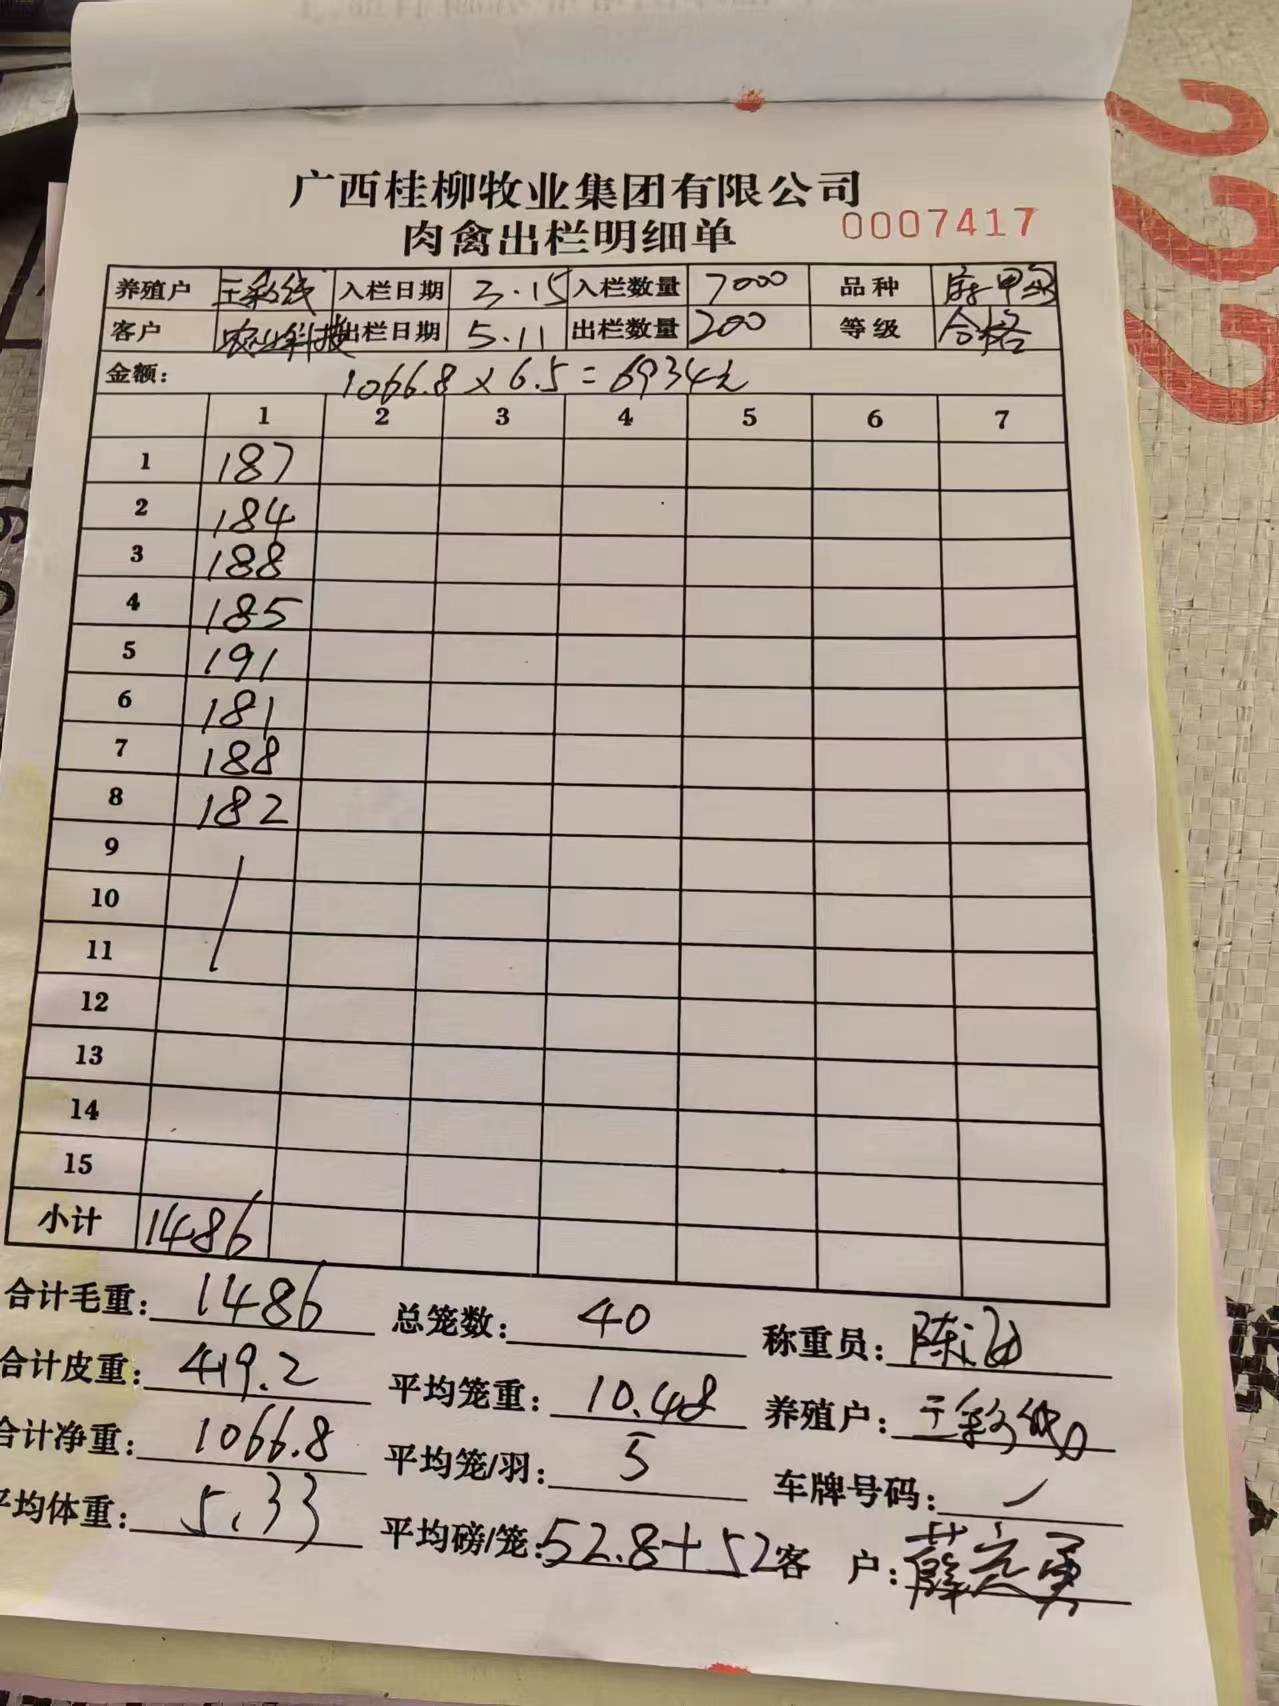 广西桂柳牧业集团有限公司
肉禽出栏明细单 0007417
养殖户 王彩线 入栏日期 3.15 入栏数量 7000 品种
客户 农业科技 出栏日期 5.11 出栏数量 200 等级 合格
金额: 1066.8×6.5=6934元
1 2 3 4 5 6 7
1 187
2 184
3 188
4 185
5 191
6 181
7 188
8 182
9
10
11
12
13
14
15
小计 1486
合计毛重: 1486 总笼数: 40 称重员:
合计皮重: 419.2 平均笼重: 10.48 养殖户: 王彩线
合计净重: 1066.8 平均笼/羽: 5 车牌号码: /
平均体重: 5.33 平均磅/笼: 52.8+52 客户:
222